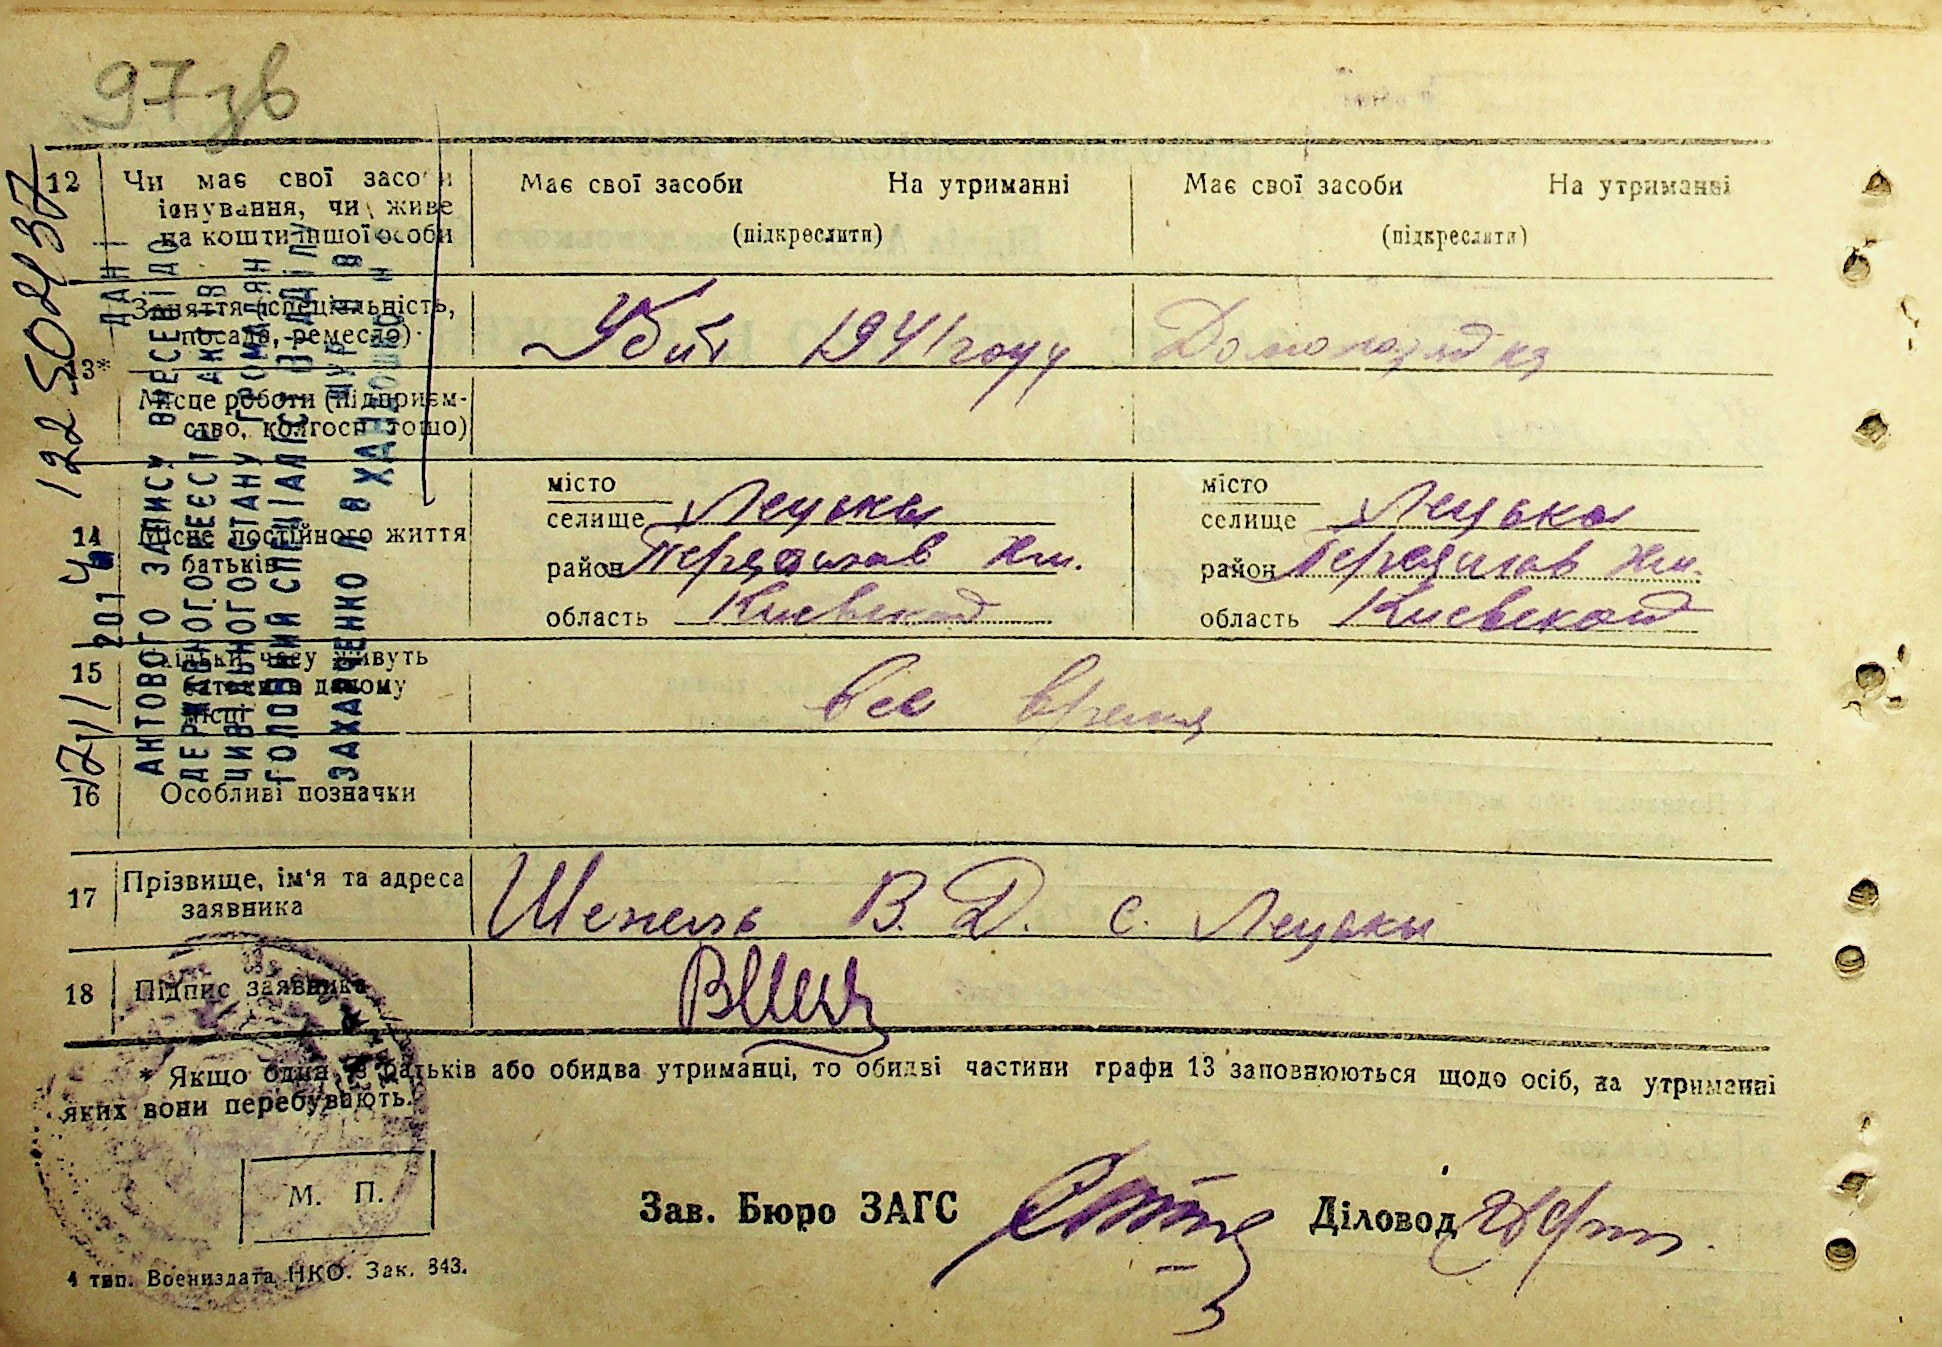 97зв
12 Чи має свої засоби існування, чи живе на кошти іншої особи
Має свої засоби На утриманні
(підкреслити)
Має свої засоби На утриманні
(підкреслити)
3* Заняття (спеціальність, посада, ремесло)
Убит 1941 году
Домохозяйка
Місце роботи (підприєм-
ство, колгосп тощо)
14 Місце постійного життя батьків
місто
селище Лецьки
район Переяслав Хм.
область Киевской
місто
селище Лецьки
район Переяслав Хм.
область Киевской
15 Скільки часу живуть батьки в даному місці
все время
16 Особливі позначки
17 Прізвище, ім'я та адреса
заявника
Шепель В. Д. с. Лецьки
18 Підпис заявника
* Якщо один з батьків або обидва утриманці, то обидві частини графи 13 заповнюються щодо осіб, на утриманні
яких вони перебувають.
М. П.
Зав. Бюро ЗАГС
Діловод
4 тип. Воениздата НКО. Зак. 843.
АКТОВОГО ЗАПИСУ
ДЕРЖАВНОГО РЕЄСТР
ЦИВІЛЬНОГО СТАНУ ГРОМАДЯН
ГОЛОВНИЙ СПЕЦІАЛІСТ ВІДДІЛУ
ЗАХАРЧЕНКО Л В
2014